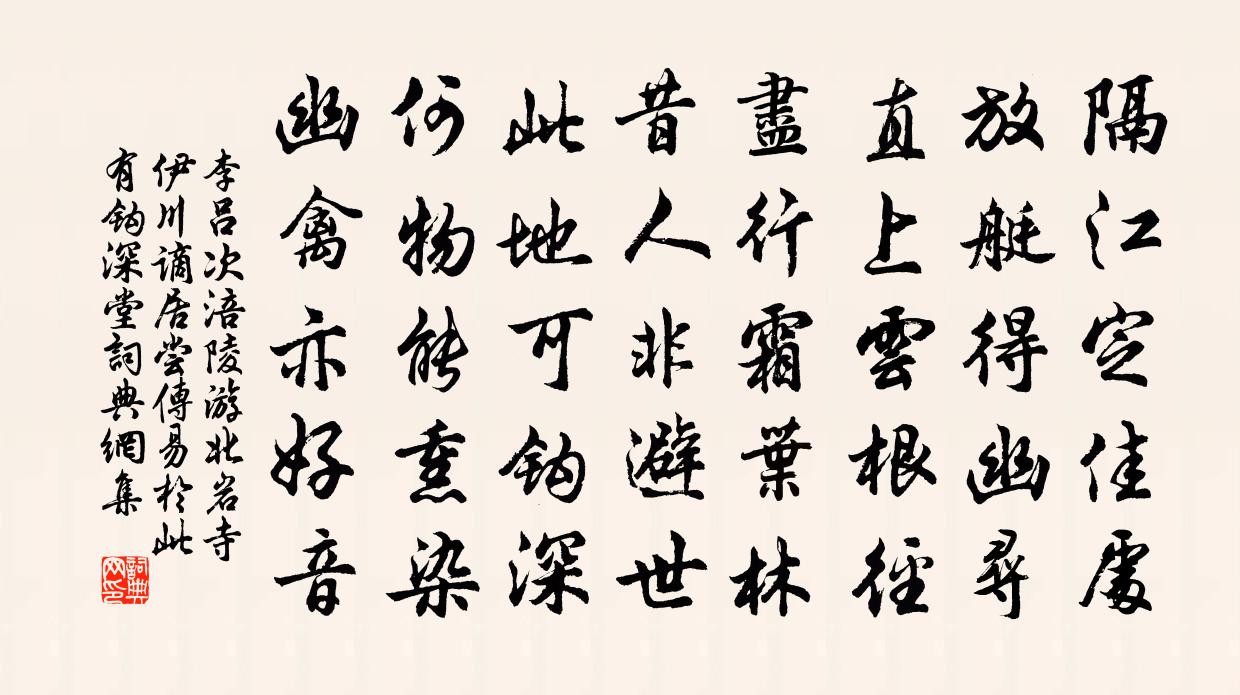 隔江定佳處
放艇得幽尋
直上雲根徑
盡行霜葉林
昔人非避世
此地可鈎深
何物能熏染
幽禽亦好音
李呂次涪陵游北岩寺
伊川謫居嘗傳易於此
有鈎深堂詞典網集
詞典网印